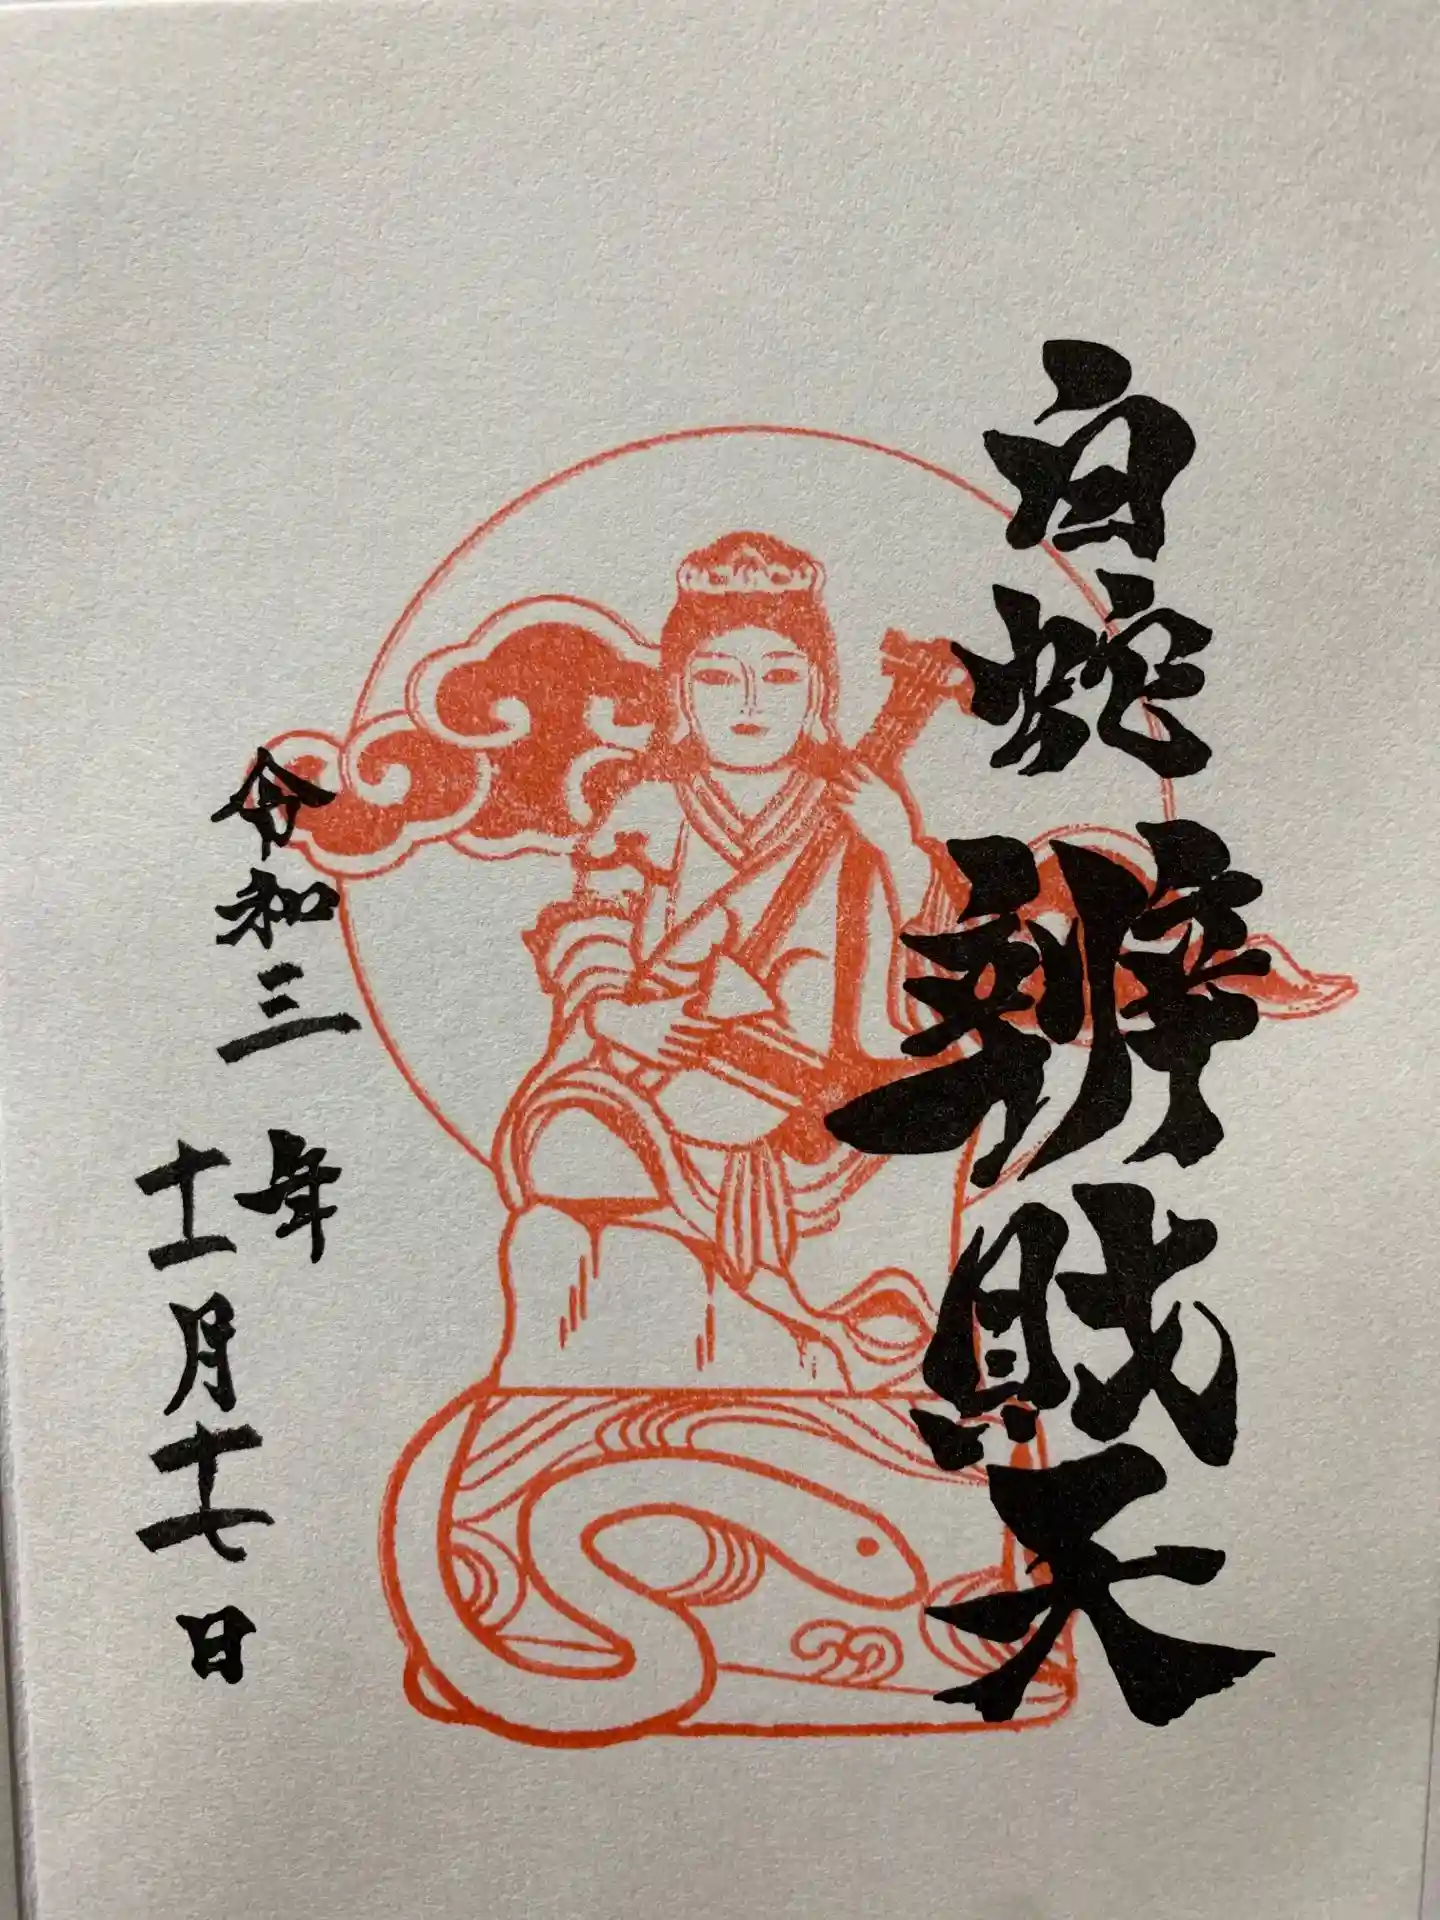 白蛇辨財天
令和三年
十一月十七日